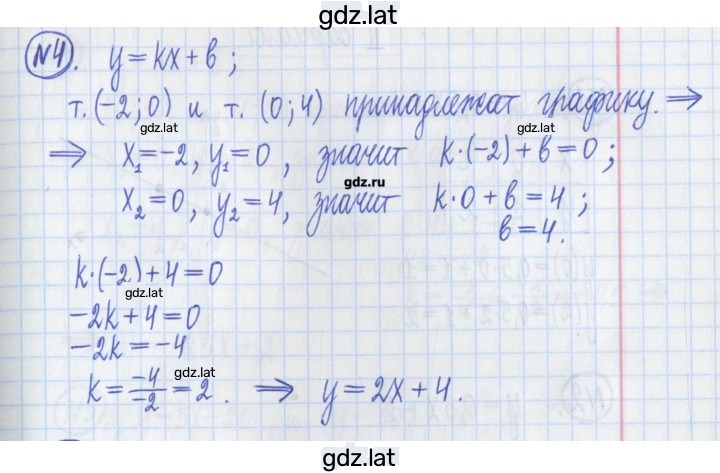 gdz.lat
№4. y = kx + b ;
т. (-2; 0) и т. (0; 4) принадлежат графику. ⇒
gdz.lat gdz.lat
⇒ x₁ = -2, y₁ = 0 , значит k·(-2) + b = 0 ;
gdz.ru
x₂ = 0, y₂ = 4, значит k·0 + b = 4 ;
b = 4.
k·(-2) + 4 = 0
gdz.lat
-2k + 4 = 0
-2k = -4
gdz.lat
k = -4/-2 = 2 . ⇒ y = 2x + 4.
gdz.lat